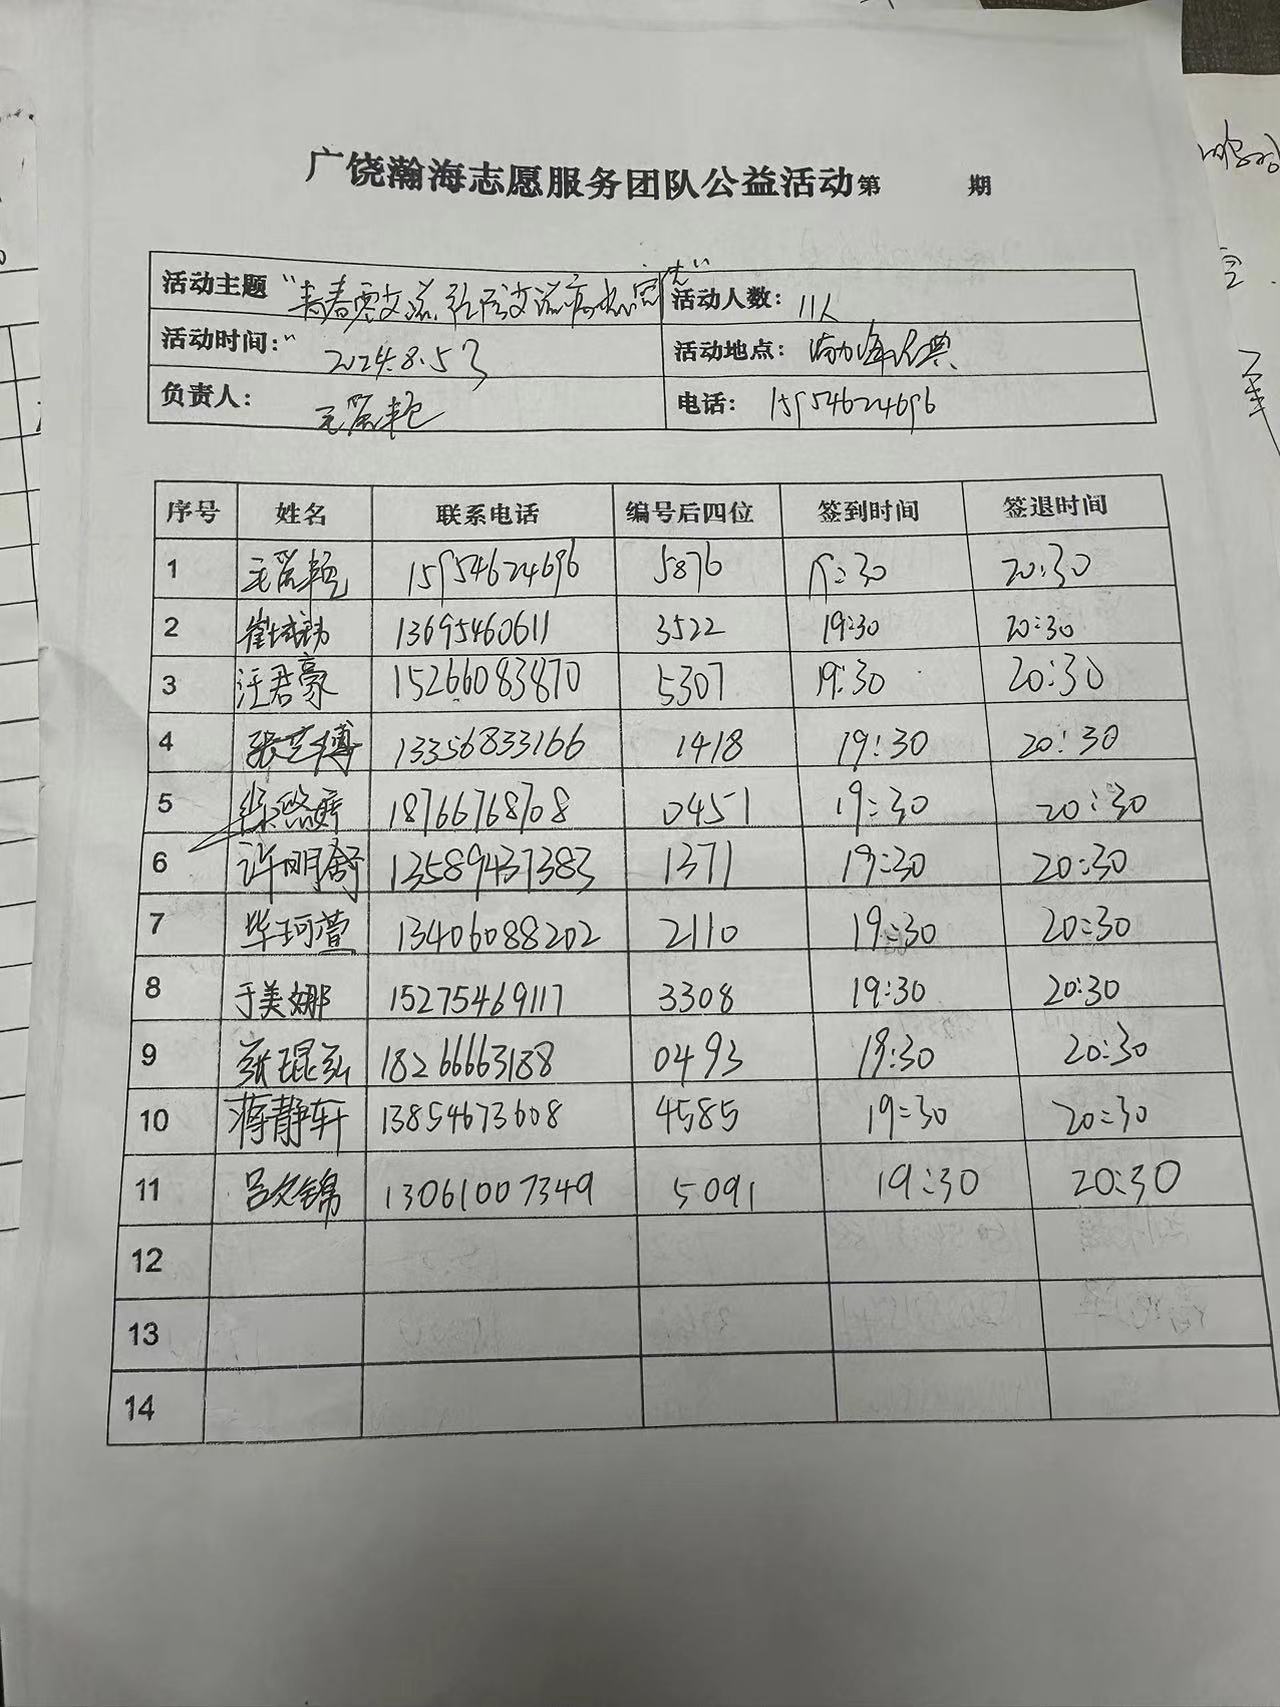 广饶瀚海志愿服务团队公益活动第 期
活动主题 活动人数: 11人
活动时间: 2024.8.53 活动地点:
负责人: 电话: 15954624696
序号 姓名 联系电话 编号后四位 签到时间 签退时间
1 15954624696 5876 20:30
2 13695460611 3522 19:30 20:30
3 汪君豪 15266083870 5307 19:30 20:30
4 张艺博 13356833166 1418 19:30 20:30
5 18766768708 0451 19:30 20:30
6 许明舒 13589437383 1371 19:30 20:30
7 毕珂萱 13406088202 2110 19:30 20:30
8 于美娜 15275469117 3308 19:30 20:30
9 张琨弘 18266663188 0493 19:30 20:30
10 蒋静轩 13854673608 4585 19:30 20:30
11 吕文锦 13061007349 5091 19:30 20:30
12
13
14